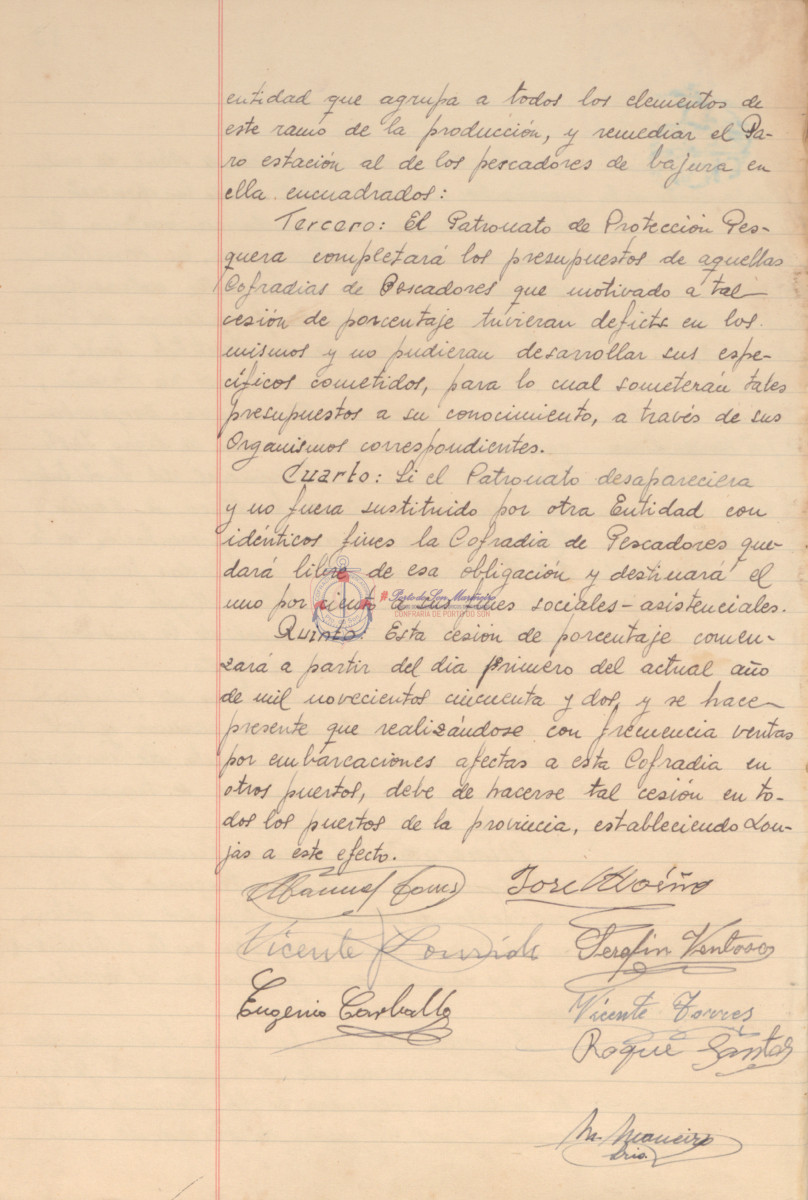 entidad que agrupa a todos los elementos de
este ramo de la producción, y remediar el Pa-
ro estación al de los pescadores de bajura en
ella encuadrados:
Tercero: El Patronato de Protección Pes-
quera completará los presupuestos de aquellas
Cofradias de Pescadores que motivado a tal
cesión de porcentaje tuvieran deficts en los
mismos y no pudieran desarrollar sus espe-
cíficos cometidos, para lo cual someterán tales
presupuestos a su conocimiento, a través de sus
Organismos correspondientes.
Cuarto: Si el Patronato desapareciera
y no fuera sustituido por otra Entidad con
idénticos fines la Cofradia de Pescadores que-
dará libre de esa obligación y destinará el
uno por ciento a sus fines sociales-asistenciales.
Porto do Son
CONFRARÍA DE PORTO DO SON
Quinto: Esta cesión de porcentaje comen-
zará a partir del dia primero del actual año
de mil novecientos cincuenta y dos, y se hace
presente que realizándose con frecuencia ventas
por embarcaciones afectas a esta Cofradia en
otros puertos, debe de hacerse tal cesión en to-
dos los puertos de la provincia, estableciendo Lon-
jas a este efecto.
Manuel Jose
Vicente Serafin Ventoso
Eugenio Carballo Vicente Torres
Roque Santos
M. Maneiro
Srio.